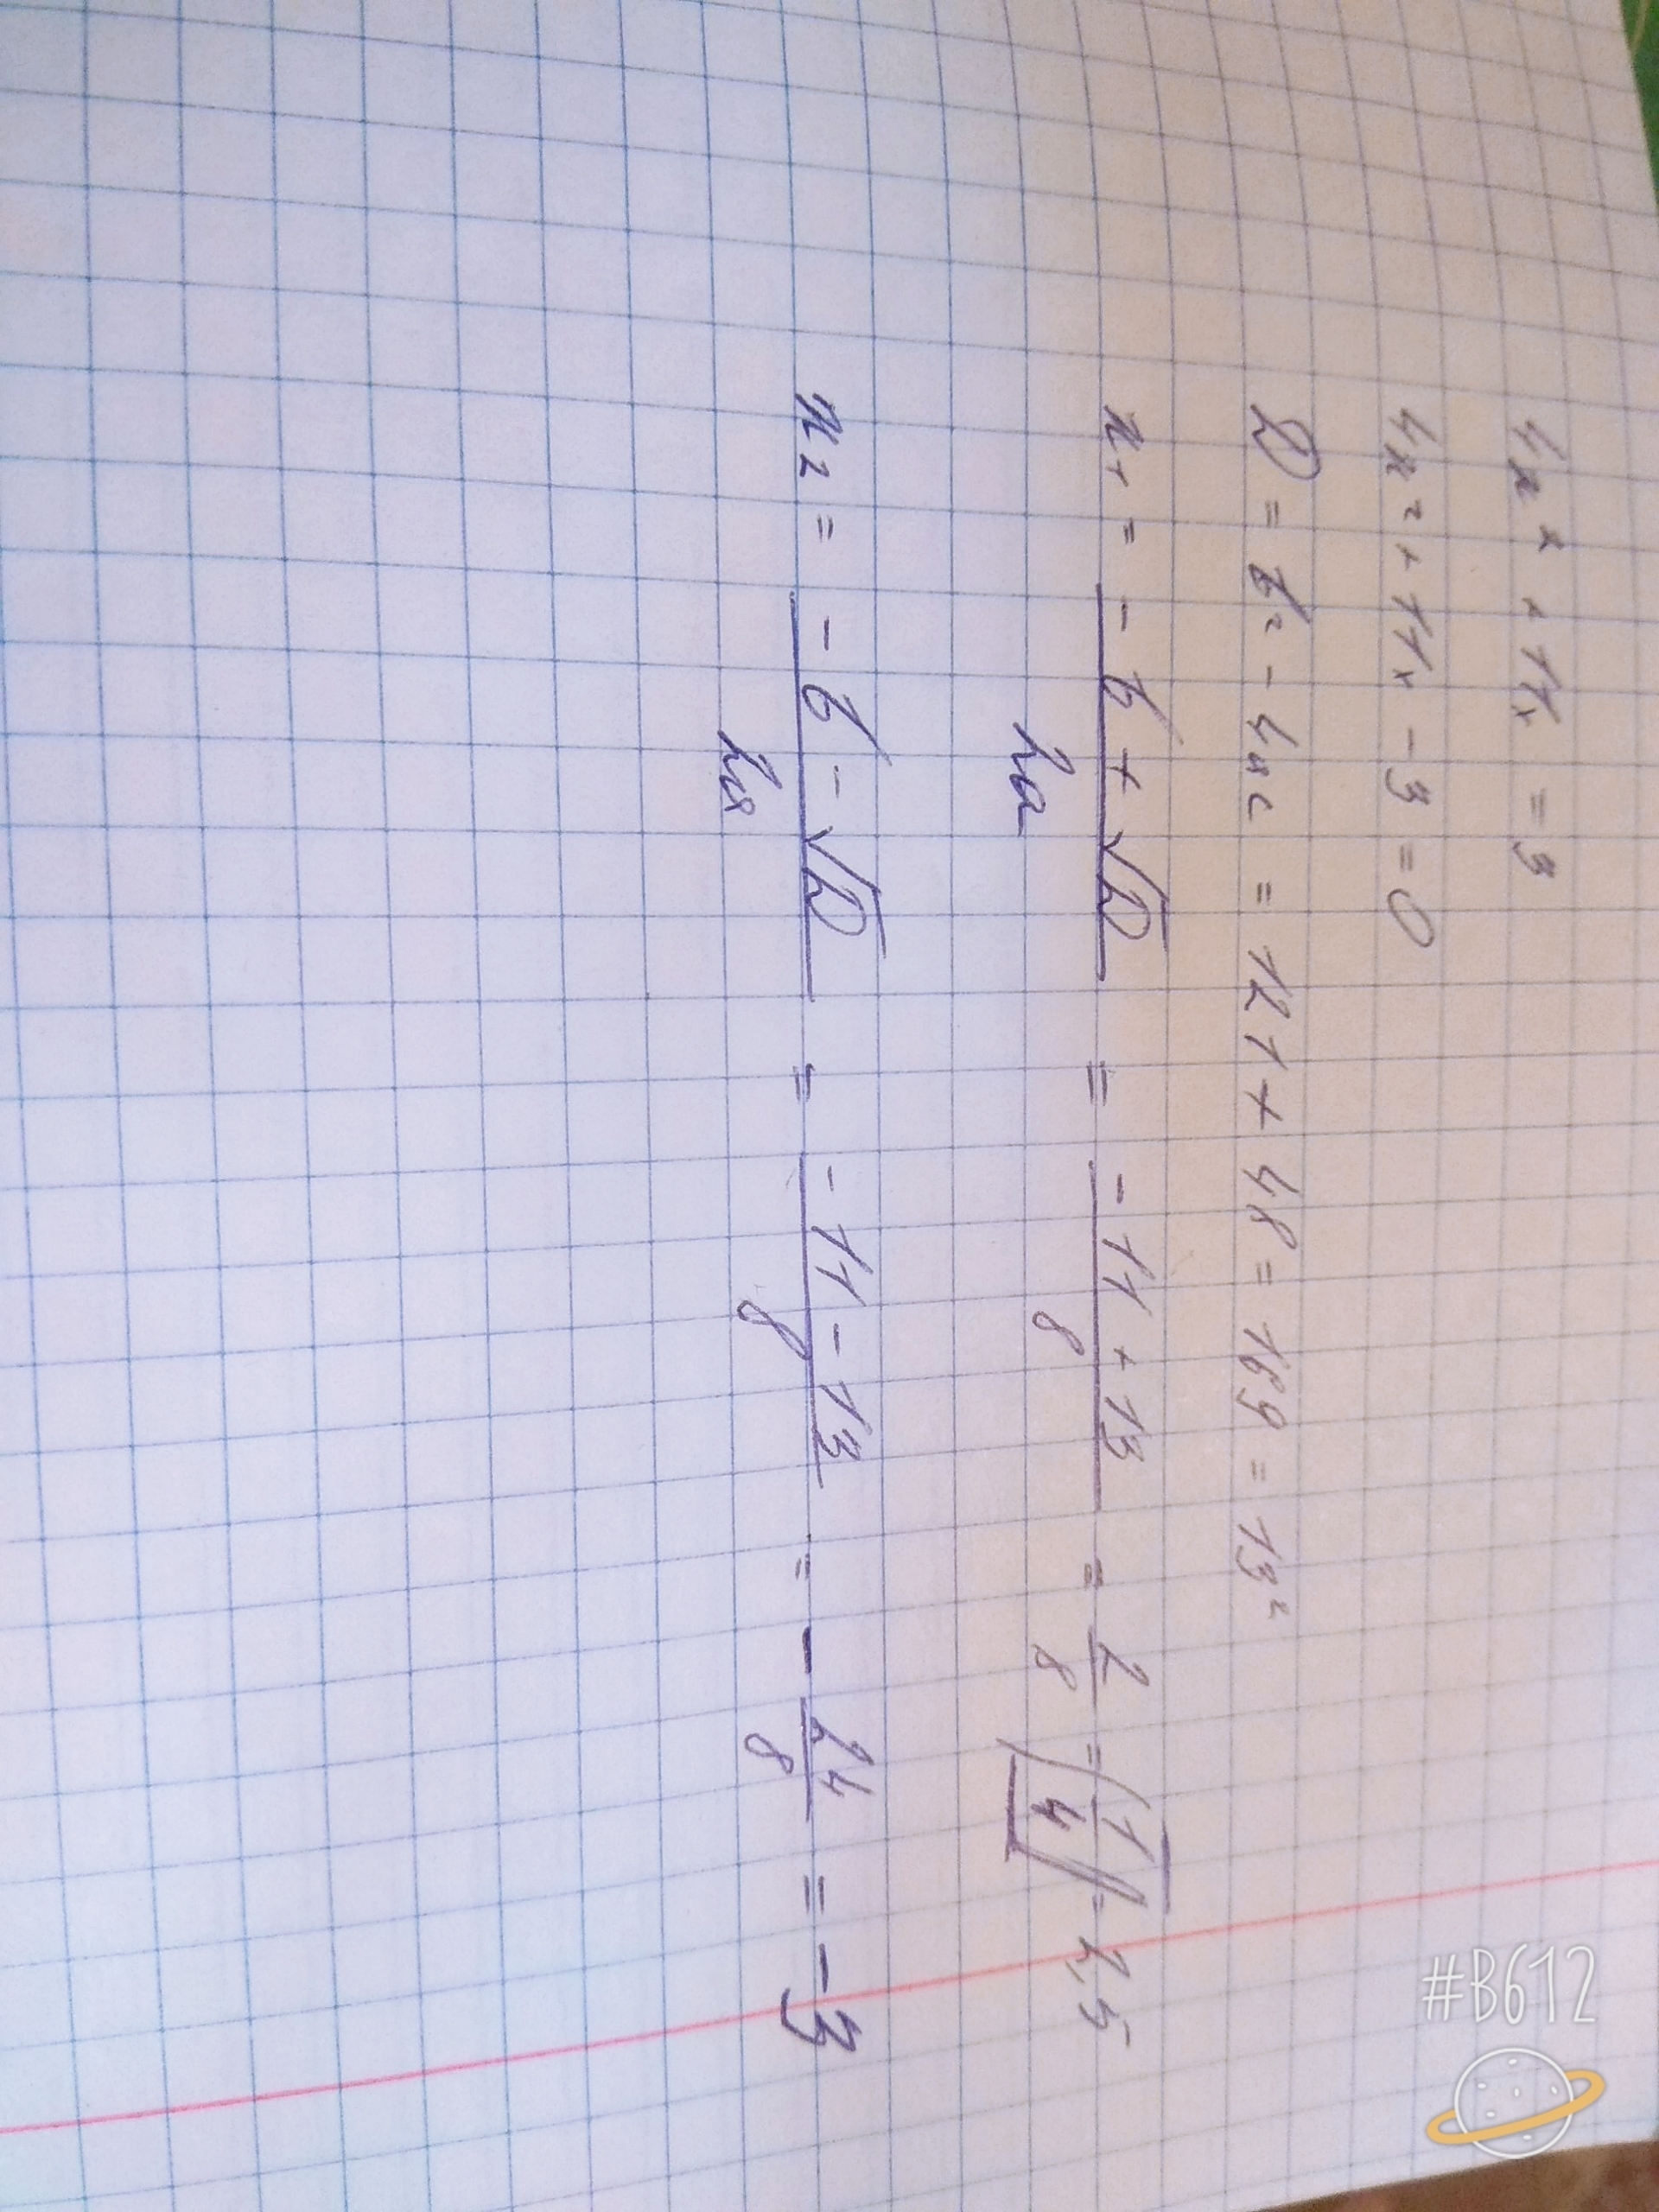 4x² + 11x = 3
4x² + 11x - 3 = 0
D = b² - 4ac = 121 + 48 = 169 = 13²
x₁ = (-b + √D)/2a = (-11 + 13)/8 = 2/8 = (1/4) = 2,5
x₂ = (-b - √D)/2a = (-11 - 13)/8 = -24/8 = -3
#B612